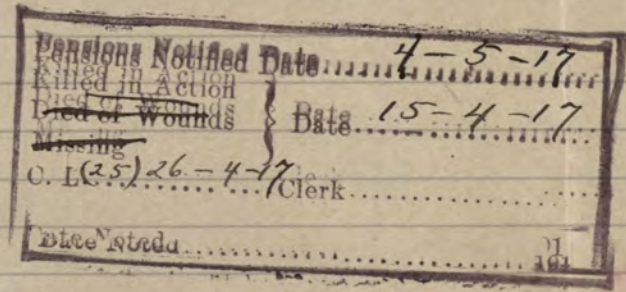 Pensions Notified Date 4-5-17
Killed in Action
Died of Wounds
Missing
Date 15-4-17
C. L (25) 26.-4-17 Clerk
Date Noted 191